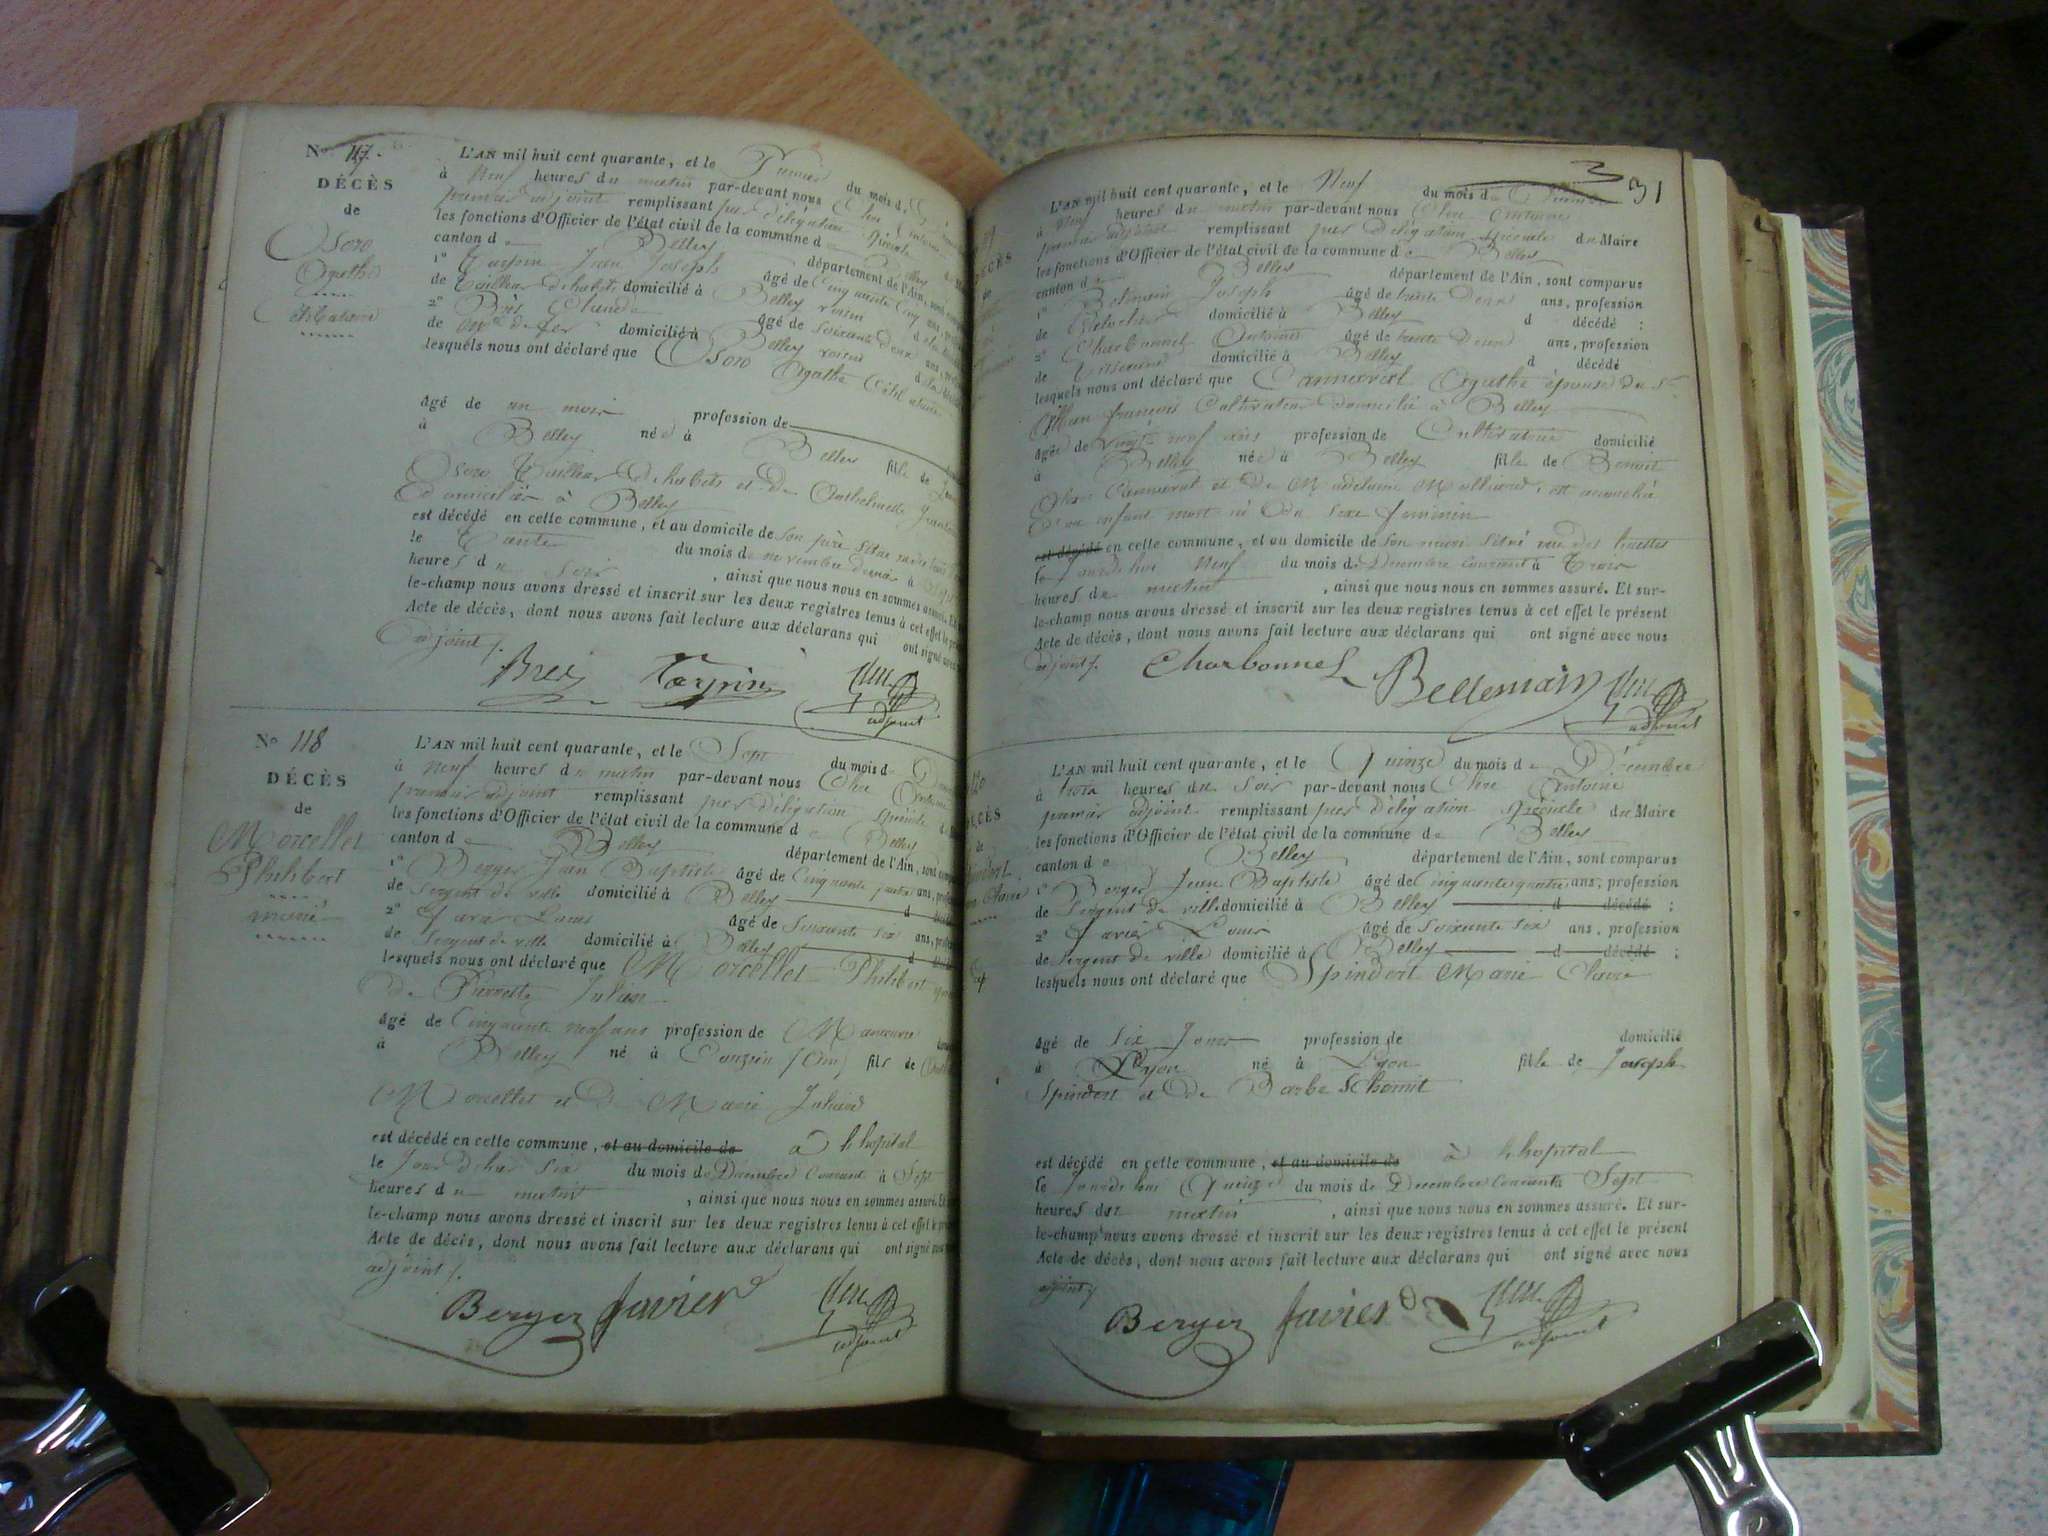 N° 117.
DÉCÈS
de
Agathe
L'AN mil huit cent quarante, et le Premier du mois d
à Neuf heures du matin par-devant nous
premier adjoint remplissant par délégation spéciale
les fonctions d'Officier de l'état civil de la commune d
canton d Belley
1° Tarpin Jean Joseph âgé de Cinquante Cinq ans
de tailleur d'habits domicilié à Belley voisin
2° Claude âgé de Soixante Deux ans
de domicilié à Belley voisin
lesquels nous ont déclaré que Agathe Célibataire
âgé de un mois profession de
à Belley née à Belley fille de
Tailleur d'habits et de
domiciliés à Belley
est décédé en cette commune, et au domicile de son père situé
le Trente du mois de novembre dernier à
heures du soir, ainsi que nous nous en sommes assuré. Et
le-champ nous avons dressé et inscrit sur les deux registres tenus à cet effet le
Acte de décès, dont nous avons fait lecture aux déclarans qui ont signé avec
adjoint /.
Tarpin
adjoint
N° 118
DÉCÈS
de
Morcellet
Philibert
marié
L'AN mil huit cent quarante, et le Sept du mois d
à Neuf heures du matin par-devant nous
premier adjoint remplissant par délégation spéciale
les fonctions d'Officier de l'état civil de la commune de Belley
canton de Belley département de l'Ain, sont
1° Berger Jean Baptiste âgé de Cinquante quatre ans,
de Sergent de ville domicilié à Belley
2° Javier Louis âgé de Soixante six ans,
de Sergent de ville domicilié à Belley
lesquels nous ont déclaré que Morcellet Philibert
de Pierrette
âgé de Cinquante neuf ans profession de Manœuvre
à Belley né à (Ain) fils de
Morcellet et de Marie
est décédé en cette commune, et au domicile de à l'hopital
le Jour d'hier six du mois de Décembre Courant à Sept
heures du matin, ainsi que nous nous en sommes assuré. Et
le-champ nous avons dressé et inscrit sur les deux registres tenus à cet effet le
Acte de décès, dont nous avons fait lecture aux déclarans qui ont signé
adjoint /.
Berger Javier
adjoint
31
L'AN mil huit cent quarante, et le Neuf du mois de
à Neuf heures du matin par-devant nous Antoine
premier adjoint remplissant par délégation spéciale du Maire
les fonctions d'Officier de l'état civil de la commune de Belley
canton de Belley département de l'Ain, sont comparus
1° Joseph âgé de trente Deux ans, profession
de domicilié à Belley d décédé :
2° Charbonnet Antoine âgé de trente ans, profession
de domicilié à Belley d décédé
lesquels nous ont déclaré que Agathe épouse du Sr
françois Cultivateur domicilié à Belley
âgée de vingt neuf ans profession de Cultivatrice domicilié
à Belley née à Belley fille de Benoit
et de Madelaine est accouchée
d'un enfant mort né du sexe feminin
est décédé en cette commune, et au domicile de son mari situé rue des
le Jourd'hui Neuf du mois de Decembre courant à Trois
heures du matin, ainsi que nous nous en sommes assuré. Et sur-
le-champ nous avons dressé et inscrit sur les deux registres tenus à cet effet le présent
Acte de décès, dont nous avons fait lecture aux déclarans qui ont signé avec nous
adjoint /.
Charbonnet Bellemain
adjoint
L'AN mil huit cent quarante, et le Quinze du mois de Décembre
à trois heures du Soir par-devant nous Antoine
premier adjoint remplissant par délégation spéciale du Maire
les fonctions d'Officier de l'état civil de la commune de Belley
canton de Belley département de l'Ain, sont comparus
1° Berger Jean Baptiste âgé de Cinquante quatre ans, profession
de Sergent de ville domicilié à Belley d décédé :
2° Javier Louis âgé de Soixante Six ans, profession
de Sergent de ville domicilié à Belley d décédé :
lesquels nous ont déclaré que Spindert Marie Claire
âgé de Six Jours profession de domicilié
à Lyon né à Lyon fille de Joseph
Spindert et de Barbe Schomit
est décédé en cette commune, et au domicile de à l'hopital
le Jourd'hui Quinze du mois de Decembre Courant à Sept
heures du matin, ainsi que nous nous en sommes assuré. Et sur-
le-champ nous avons dressé et inscrit sur les deux registres tenus à cet effet le présent
Acte de décès, dont nous avons fait lecture aux déclarans qui ont signé avec nous
adjoint
Berger Javier
adjoint